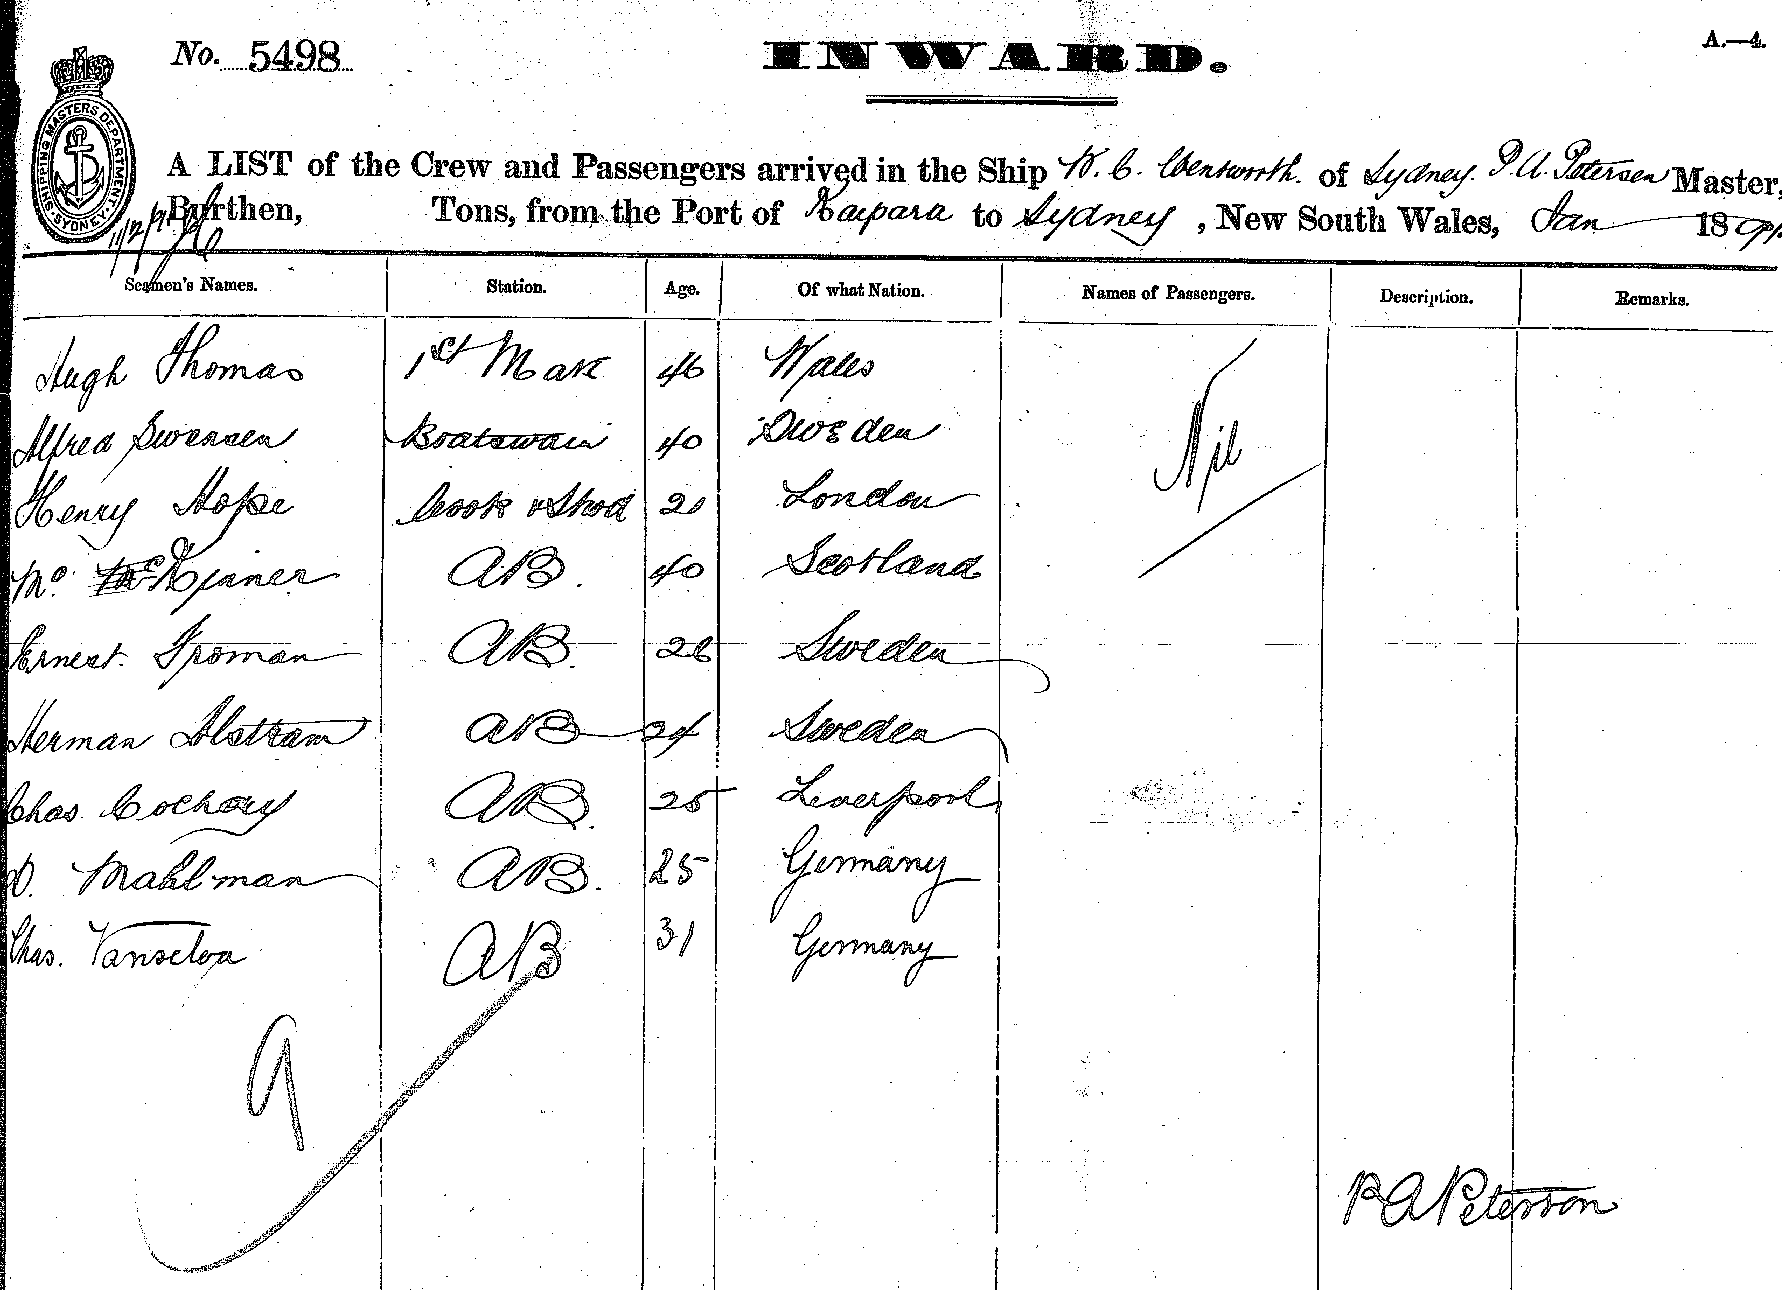 No. 5498 INWARD. A.—4.
SHIPPING MASTERS DEPARTMENT SYDNEY
A LIST of the Crew and Passengers arrived in the Ship W. C. Wentworth. of Sydney. P. A. Petersen Master,
Burthen, Tons, from the Port of Kaipara to Sydney, New South Wales, Jan 1891.
Seamen's Names. Station. Age. Of what Nation. Names of Passengers. Description. Remarks.
Hugh Thomas 1st Mate 46 Wales
Alfred Swensen Boatswain 40 Sweden Nil
Henry Hope Cook & Stwd 20 London
AB. 40 Scotland
Ernest. Froman AB. 26 Sweden
Herman Alstram AB 24 Sweden
Chas. AB. 25 Liverpool
Mahlman AB. 25 Germany
Chas. Vanselow AB 31 Germany
9
P A Peterson